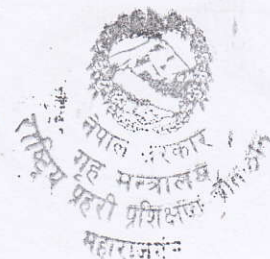 नेपाल सरकार
गृह मन्त्रालय
राष्ट्रिय प्रहरी प्रशिक्षण
महाराजगंज